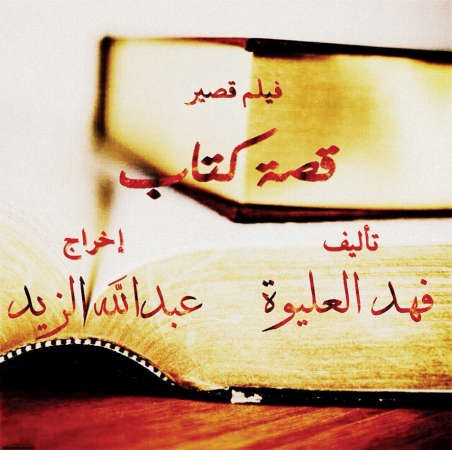 فيلم قصير
قصة كتاب
تأليف
فهد العليوة
إخراج
عبدالله الزيد